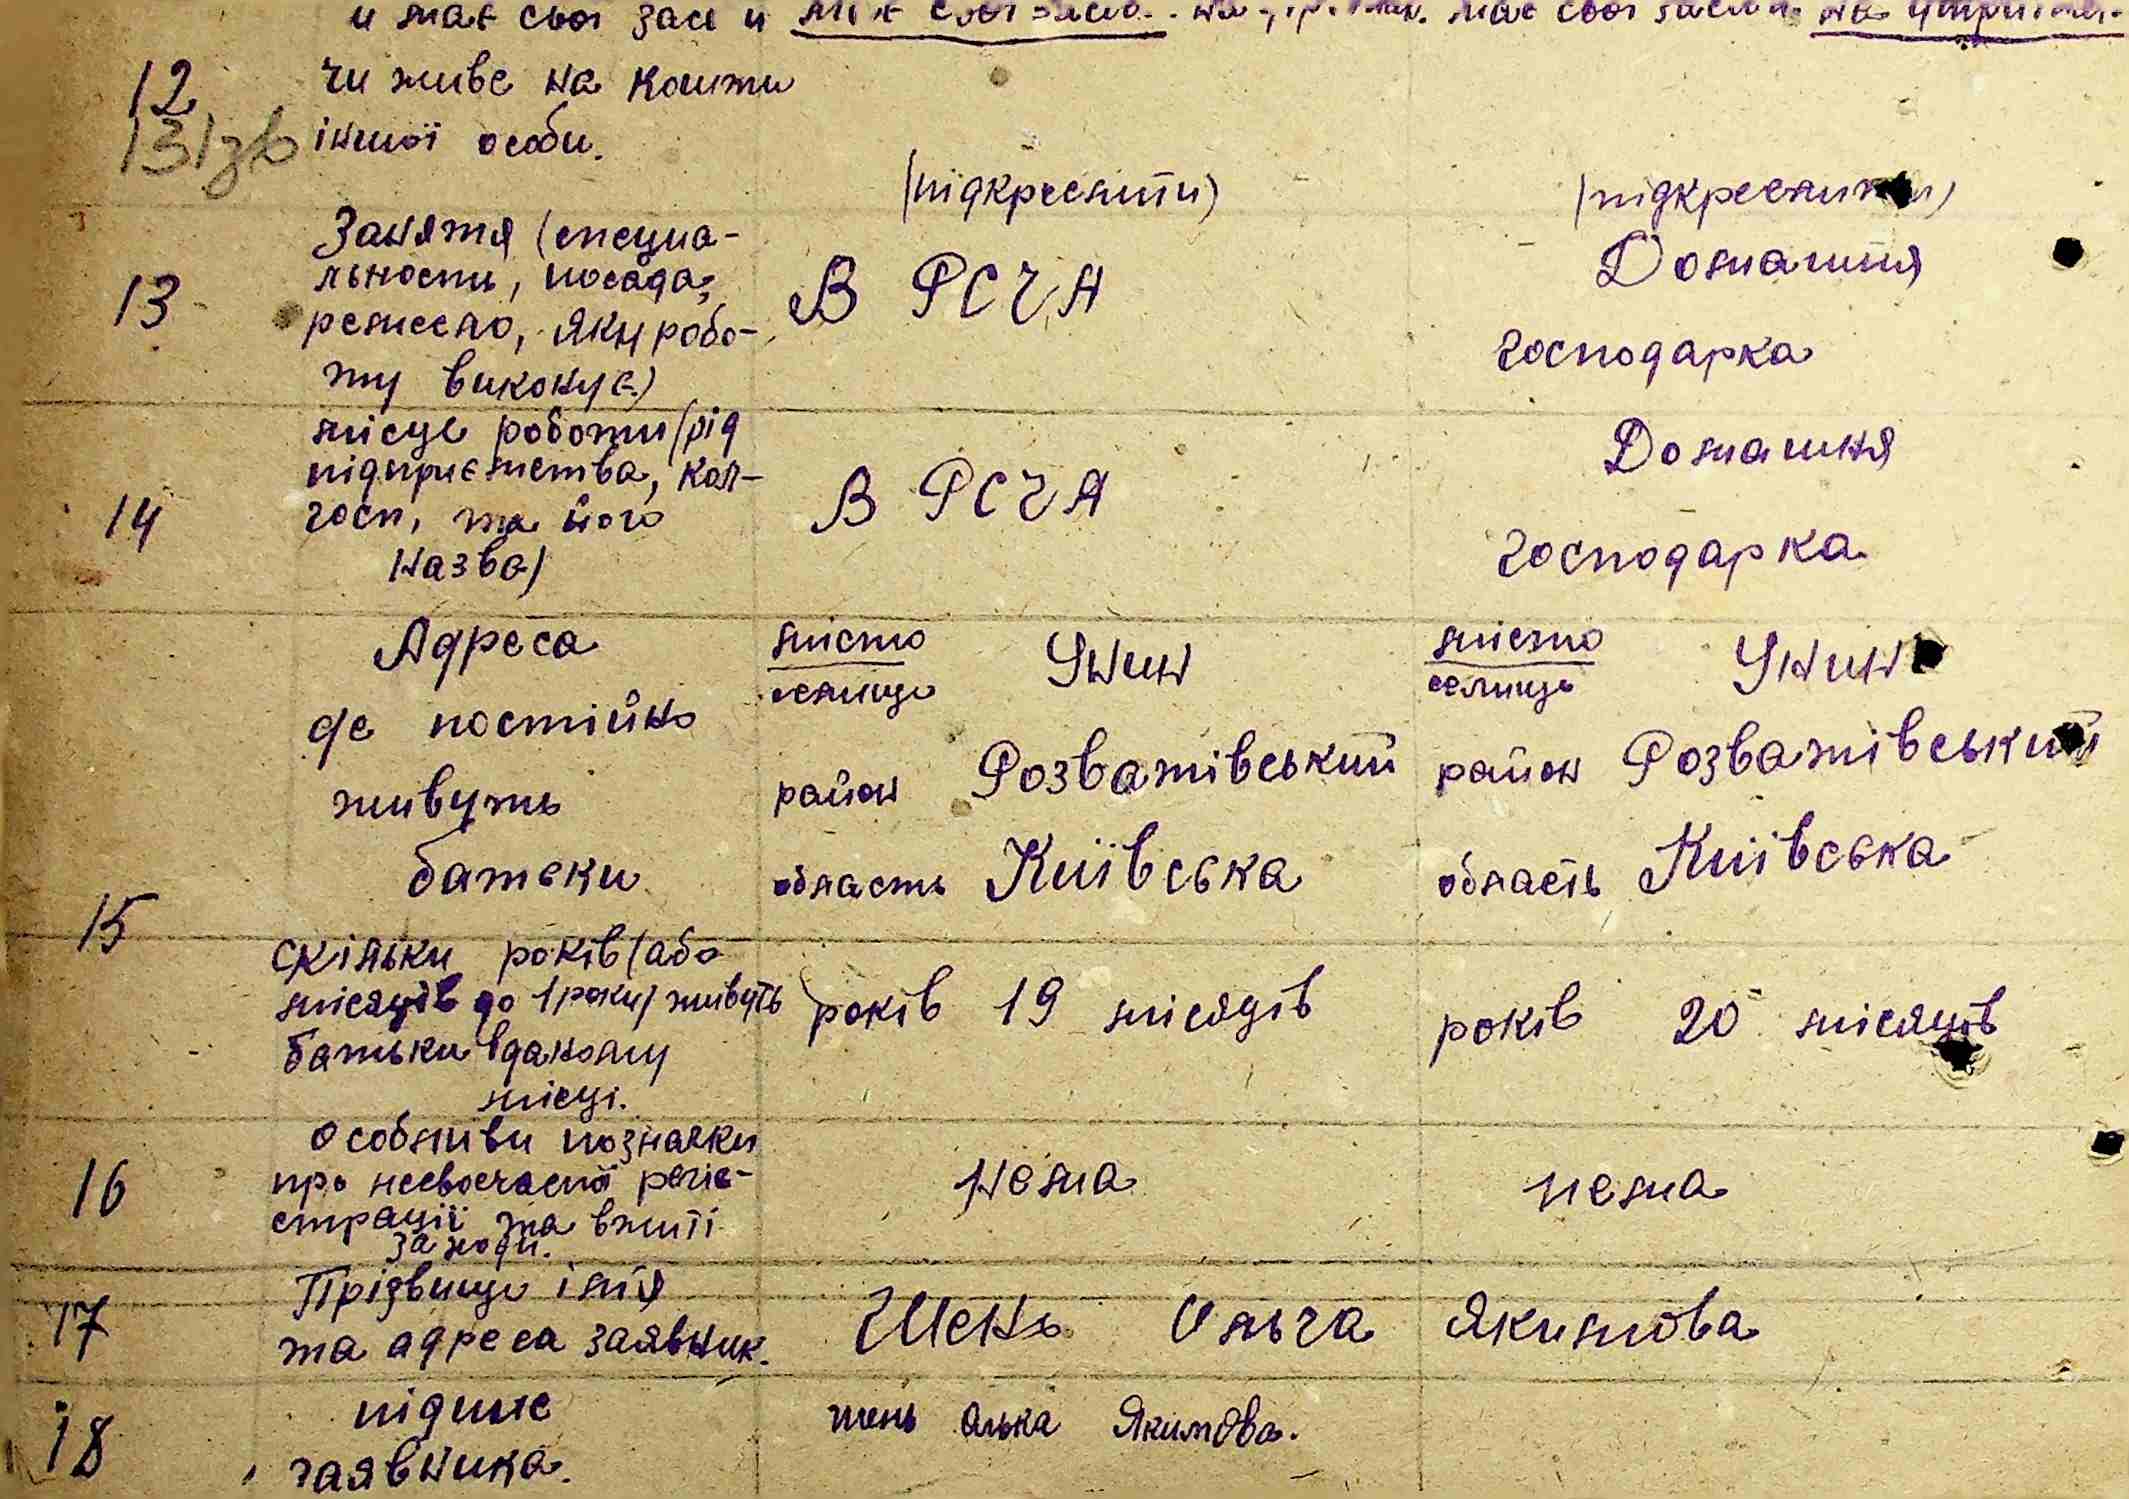 и має свої має свої має свої
12 чи живе на кошти
131зв іншої особи.
(підкреслити) (підкреслити)
13 Заняття (специа-
льность, посада,
ремесло, яку робо-
ту виконує)
В РСЧА
Домашня
господарка
14 місце роботи (рід
підприємства, кол-
госп, та його
назва)
В РСЧА
Домашня
господарка
15 Адреса
де постійно
живуть
батьки
місто
селище Унин
район Розважівський
область Київська
місто
селище Унин
район Розважівський
область Київська
скільки років (або
місяців до 1 року) живуть
батьки в даному
місці.
років 19 місяців
років 20 місяців
16 особливи позначки
про несвоєчасної регіс-
трації та вжиті
заходи.
нема
нема
17 Прізвище імя
та адреса заявник.
Шень Ольга Якимова
18 підпис
заявника.
шень олька Якимова.